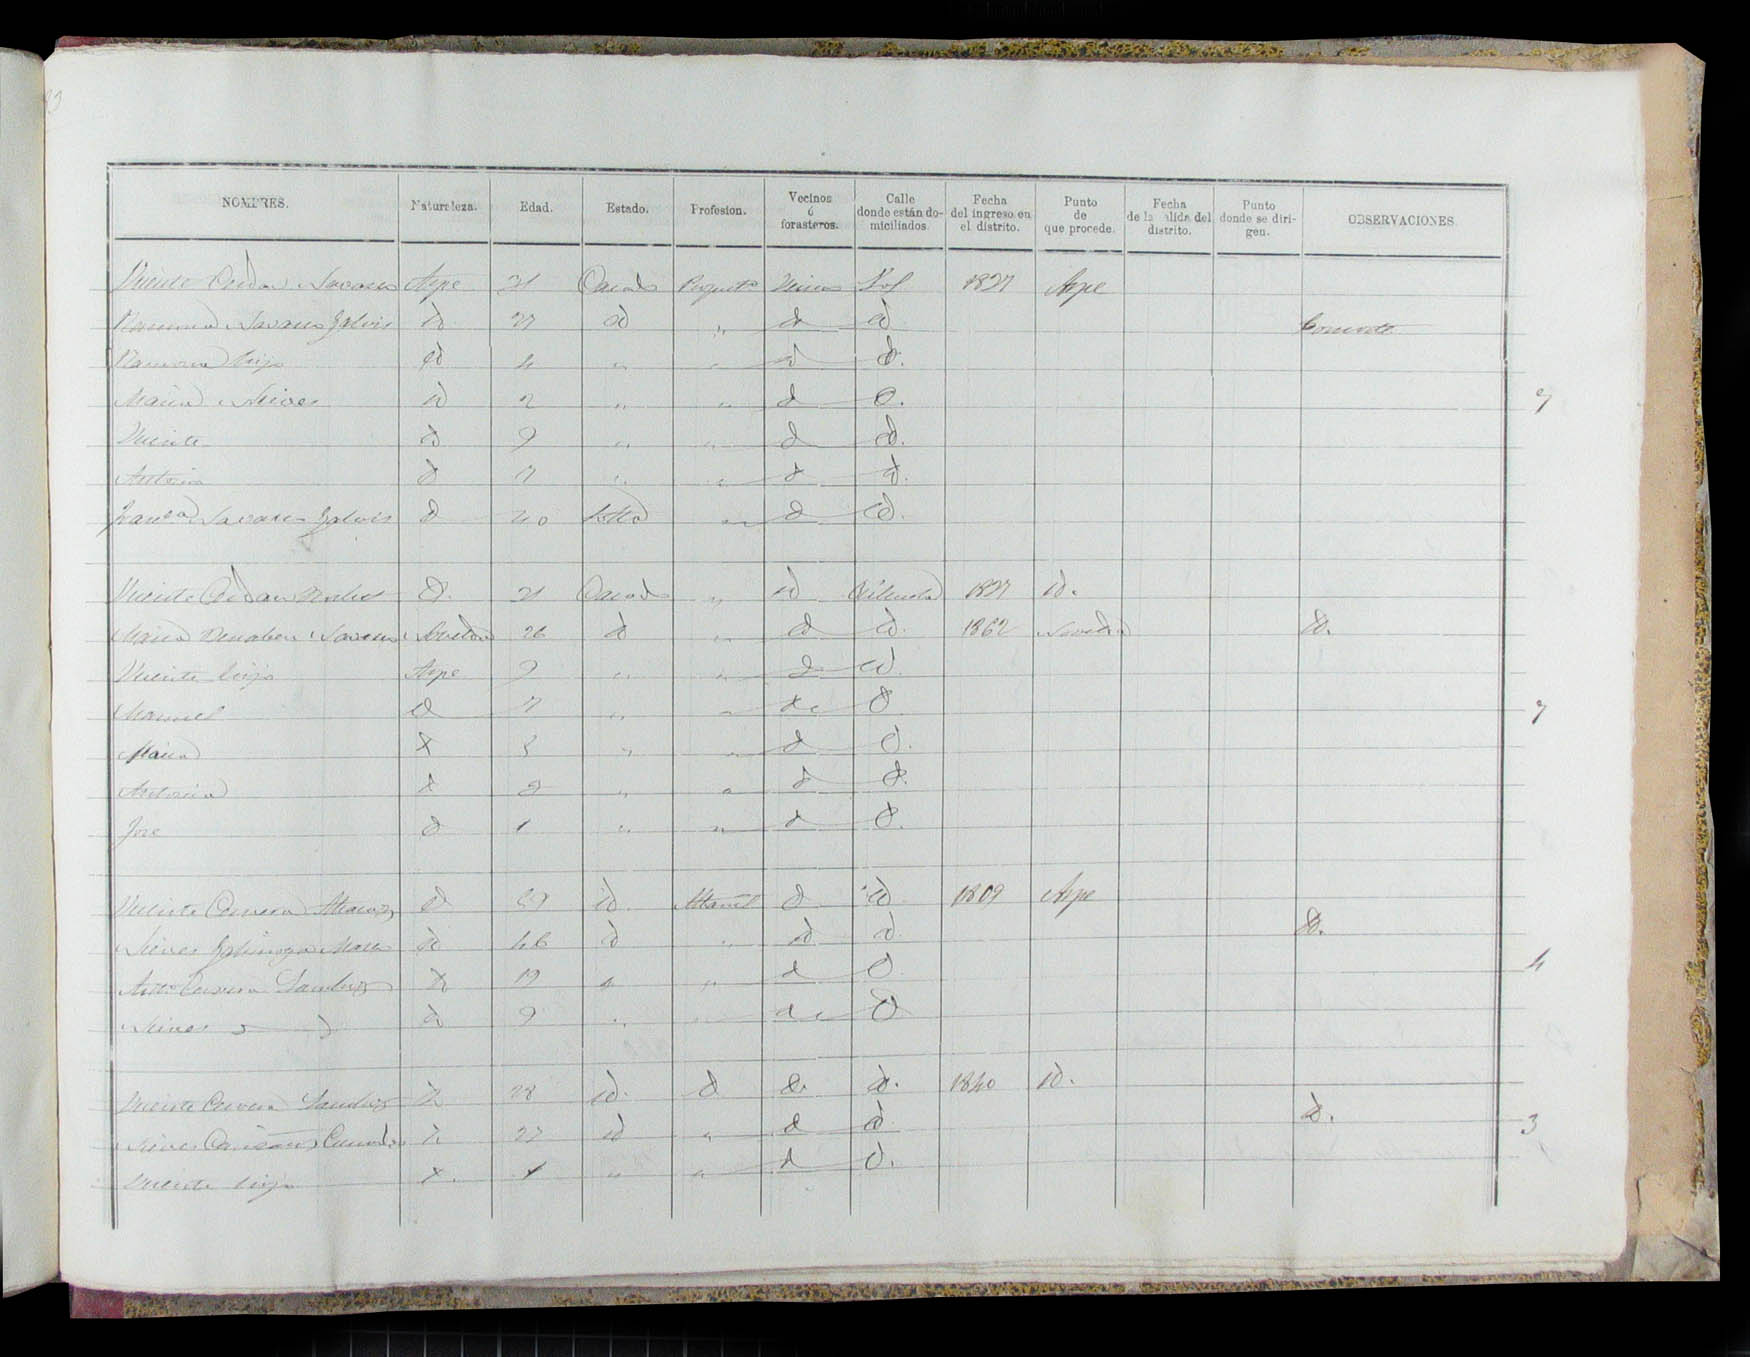 NOMBRES. Naturaleza. Edad. Estado. Profesion. Vecinos ó forasteros. Calle donde están domiciliados. Fecha del ingreso en el distrito. Punto de que procede. Fecha de la salida del distrito. Punto donde se dirigen. OBSERVACIONES.
Vicente Cerdan Navarro Aspe 31 Casado Vecino Sol 1837 Aspe
Ramona Navarro Galvis id 27 id id id Consorte
Ramona hija id 4 " " id id.
Maria Nieves id 2 " " id id.
Vicente id 9 " " id id.
Antonia id 7 " " id id.
Franca Navarro Galvis id 40 Solta " id id.
7
Vicente Cerdan id. 31 Casado " id Orihuela 1837 id.
Maria Navarro 26 id " id id. 1862 Novelda id.
Vicente hijo Aspe 9 " " id id.
Manuel id 7 " " id id
Maria id 3 " " id id.
Antonia id 2 " " id id.
Jose id 1 " " id id.
7
Vicente Cervera id 59 id. Albañil id id 1809 Aspe
Nieves id 46 id " id id id.
Anto Cervera Sanchez id 19 " " id id
Nieves id id id 9 " " id id
4
Vicente Cervera Sanchez id 28 id. id id. id. 1840 id.
Nieves id 27 id " id id id.
Vicente hijo id. 1 " " id id.
3